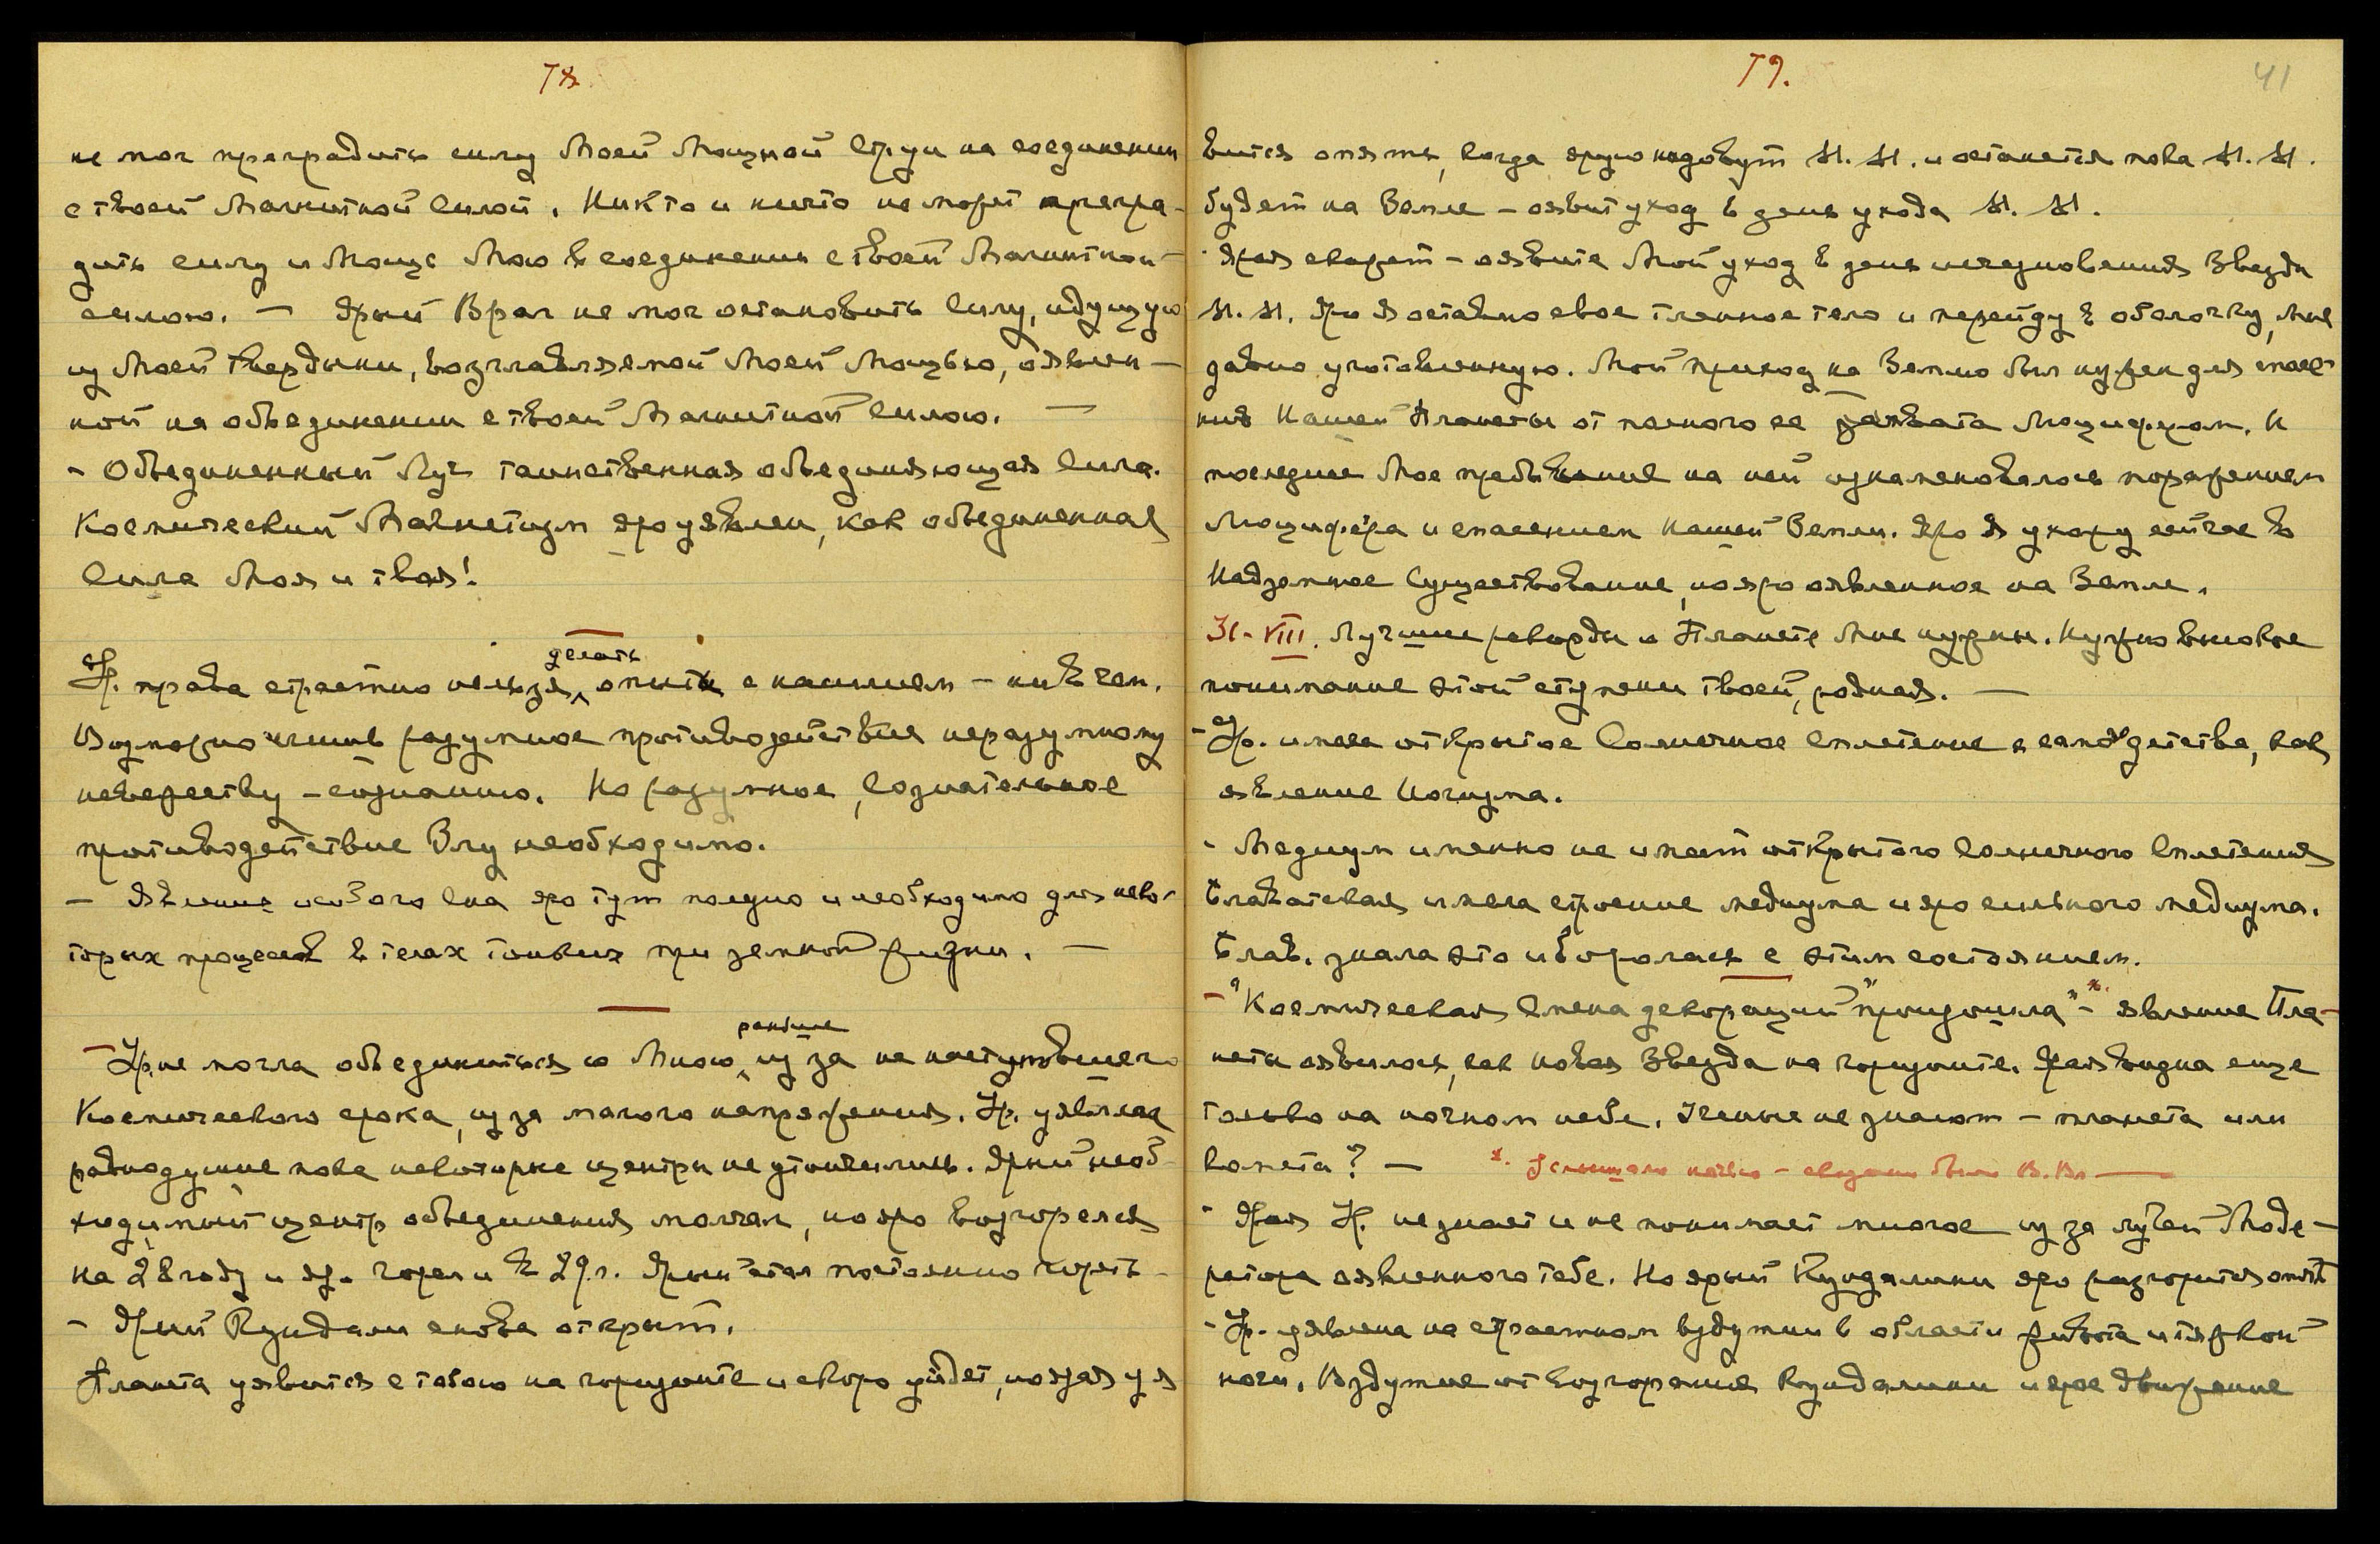 78
не мог преградить силу Моей Мощной Струи на соединении
с твоей Магнитной Силой. Никто и ничто не может прегра-
дить силу и Мощь Мою в соединении с твоей Магнитной
силою. — Ярый Враг не мог остановить Силу, идущую
из Моей Твердыни, возглавляемой Моей Мощью, явлен-
ной на объединении с твоей Магнитной Силою. —
- Объединенный Луч таинственная объединяющая Сила.
Космический Магнетизм яро уявлен, как объединенная
Сила Моя и твоя!
Ур. права страстно нельзя делать опыты с насилием - ни в чем.
Возможно лишь разумное противодействие неразумному
невежеству - сознанию. Но разумное, Сознательное
противодействие Злу необходимо.
- Явление особого Сна яро тут полезно и необходимо для неко-
торых процессов в телах тонких при земной жизни. —
- Ур. не могла объединиться со Мною раньше из за не наступившего
Космического срока, из за малого напряжения. Ур. уявляла
равнодушие пока некоторые центры не утончились. Ярый необ-
ходимый центр объединения молчал, но яро возгорелся
на 28 году и яр. горел и в 29 г. Ярый стал постоянно гореть -
- Ярый Кундали снова открыт.
Планета уявится с тобою на горизонте и скоро уйдет, но ярая уя
79.
41
вится опять, когда ярую надобут Н. Н. и останется пока Н. Н.
будет на Земле - оявит уход в день ухода Н. Н.
- Ярая сварет - оявите Мой уход в день исчезновения Звезды
Н. Н. Яро Я оставлю свое тленное тело и перейду в оболочку, Мне
давно уготовленную. Мой приход на Землю был нужен для спасе-
ния Нашей Планеты от полного ее захвата Люцифером. И
последнее Мое пребывание на ней ознаменовалось поражением
Люцифера и спасением Нашей Земли. Яро Я ухожу сейчас в
Надземное Существование, но яро оявленное на Земле.
31-VIII. Лучшие рекорды о Планете Мне нужны. Нужно высокое
понимание этой ступени твоей, родная. —
- Ур. имела открытое Солнечное Сплетение с самого детства, как
явление Иогизма.
- Медиум именно не имеет открытого Солнечного Сплетения
Блаватская имела строение медиума и яро сильного медиума.
Блав. знала это и боролась с этим состоянием.
- "Космическая Смена декораций "произошла" *. - явление Пла-
неты оявилось, как новая Звезда на горизонте. Ярая видна еще
только на ночном небе. Ученые не знают - планета или
комета? — *. Услышала ночью - сказано было В. Вл —
- Ярая Ур. не знает и не понимает многое из за лучей Моде-
ратора оявленного тебе. Но ярый Кундалини яро разгорится опять
- Ур. уявлена на страстном вздутии в области живота и тяжкой
ноги. Вздутие от возгорания Кундалини и ярое движение